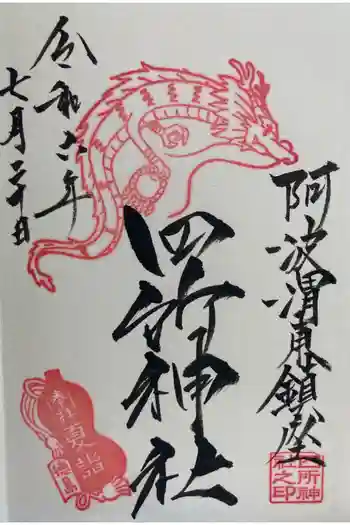 阿波渭東鎮座
四所神社
令和六年
七月二十日
参拝
夏詣
徳島
四所神
社之印